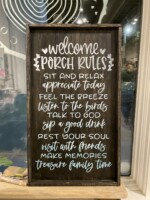 welcome
PORCH RULES
SIT AND RELAX
appreciate today
FEEL THE BREEZE
listen to the birds
TALK TO GOD
sip a good drink
REST YOUR SOUL
visit with friends
MAKE MEMORIES
treasure family time